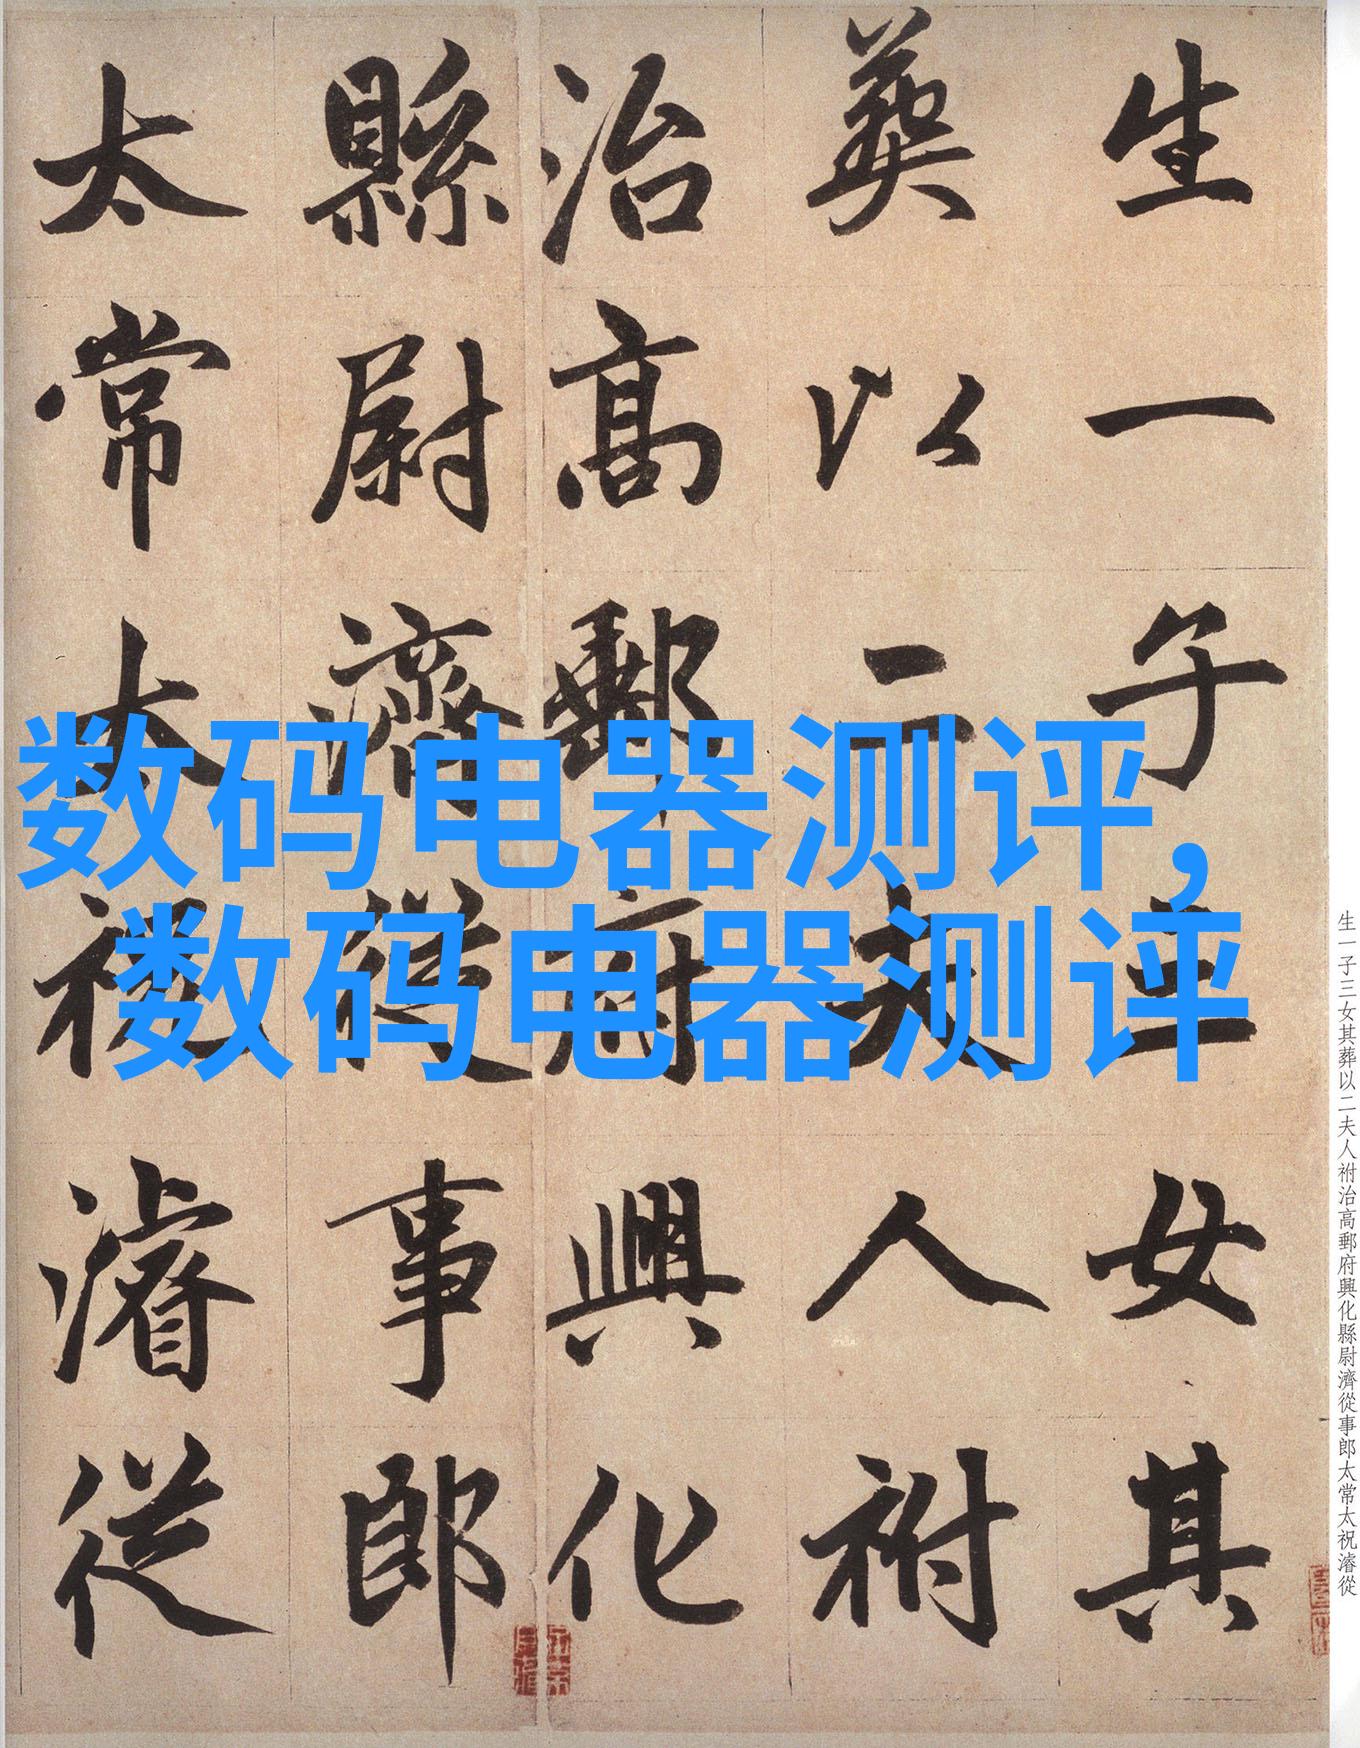 数码电器测评,
数码电器测评
生一子三女其
葬以二夫人祔
治高郵府興化
縣尉濟從事郎
太常太祝濬從
生一子三女其葬以二夫人祔治高郵府興化縣尉濟從事郎太常太祝濬從